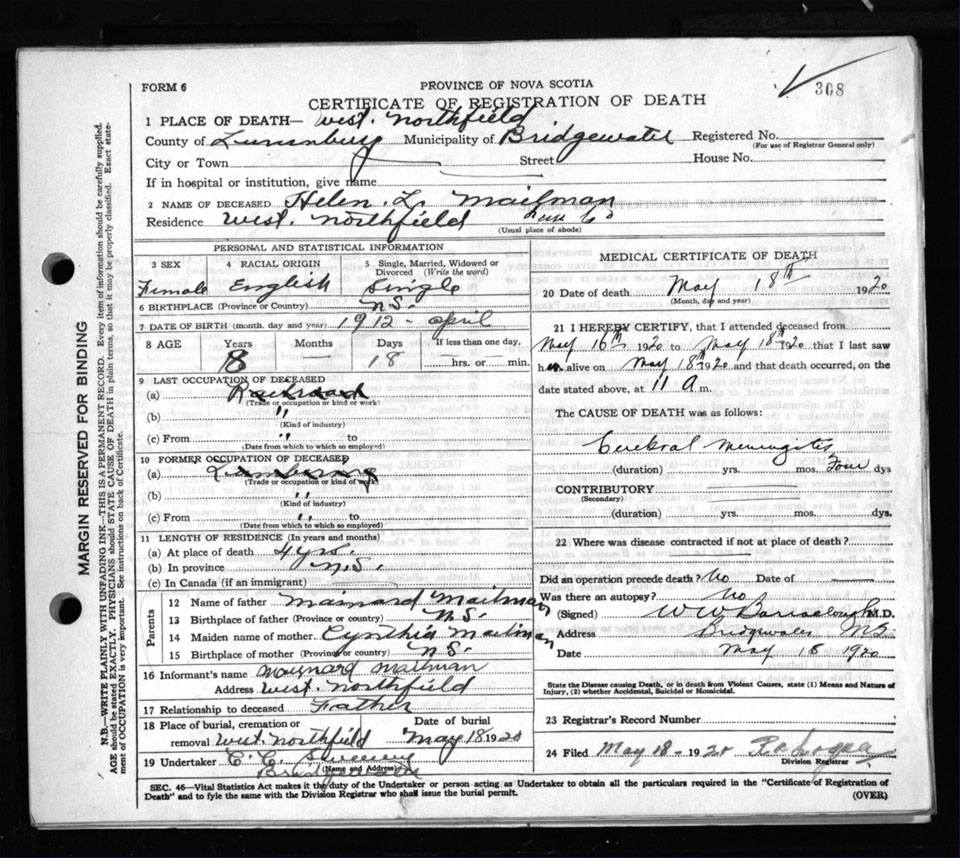 308
FORM 6
PROVINCE OF NOVA SCOTIA
CERTIFICATE OF REGISTRATION OF DEATH
1 PLACE OF DEATH— West. Northfield
County of Lunenburg Municipality of Bridgewater Registered No.
(For use of Registrar General only)
City or Town Street House No.
If in hospital or institution, give name
2 NAME OF DECEASED Helen. L. Mailman
Residence West. Northfield Lun Co
(Usual place of abode)
PERSONAL AND STATISTICAL INFORMATION
3 SEX Female
4 RACIAL ORIGIN English
5 Single, Married, Widowed or Divorced (Write the word) Single
6 BIRTHPLACE (Province or Country) N.S.
7 DATE OF BIRTH (month, day and year) 1912 - April
8 AGE Years Months Days If less than one day,
8 — 18 hrs. or min.
9 LAST OCCUPATION OF DECEASED
(a)
(Trade or occupation or kind of work)
(b) "
(Kind of industry)
(c) From " to
(Date from which to which so employed)
10 FORMER OCCUPATION OF DECEASED
(a)
(Trade or occupation or kind of work)
(b) "
(Kind of industry)
(c) From " to
(Date from which to which so employed)
11 LENGTH OF RESIDENCE (In years and months)
(a) At place of death 4 yrs.
(b) In province N.S.
(c) In Canada (if an immigrant)
Parents
12 Name of father Mainard Mailman
13 Birthplace of father (Province or country) N.S.
14 Maiden name of mother Cynthia Mailman
15 Birthplace of mother (Province or country) N.S.
16 Informant's name Maynard Mailman
Address West. Northfield
17 Relationship to deceased Father
18 Place of burial, cremation or removal West. Northfield Date of burial May 18 1920
19 Undertaker C. E.
(Name and Address)
MEDICAL CERTIFICATE OF DEATH
20 Date of death May 18th 1920
(Month, day and year)
21 I HEREBY CERTIFY, that I attended deceased from
May 16th 1920 to May 18th 1920 that I last saw
her alive on May 18th 1920 and that death occurred, on the
date stated above, at 11 a m.
The CAUSE OF DEATH was as follows:
Cerebral Meningites
(duration) yrs. mos. Four dys
CONTRIBUTORY
(Secondary)
(duration) yrs. mos. dys.
22 Where was disease contracted if not at place of death?
Did an operation precede death? No Date of
Was there an autopsy? No
(Signed) W W Barraclough M.D.
Address Bridgewater N S
Date May 18 1920
State the Disease causing Death, or in death from Violent Causes, state (1) Means and Nature of
Injury, (2) whether Accidental, Suicidal or Homicidal.
23 Registrar's Record Number
24 Filed May 18 - 1920
Division Registrar
SEC. 46—Vital Statistics Act makes it the duty of the Undertaker or person acting as Undertaker to obtain all the particulars required in the "Certificate of Registration of
Death" and to fyle the same with the Division Registrar who shall issue the burial permit.
(OVER)
MARGIN RESERVED FOR BINDING
N.B.—WRITE PLAINLY WITH UNFADING INK—THIS IS A PERMANENT RECORD. Every item of information should be carefully supplied.
AGE should be stated EXACTLY. PHYSICIANS should STATE CAUSE OF DEATH in plain terms, so that it may be properly classified. Exact statement of OCCUPATION is very important. See instructions on back of Certificate.